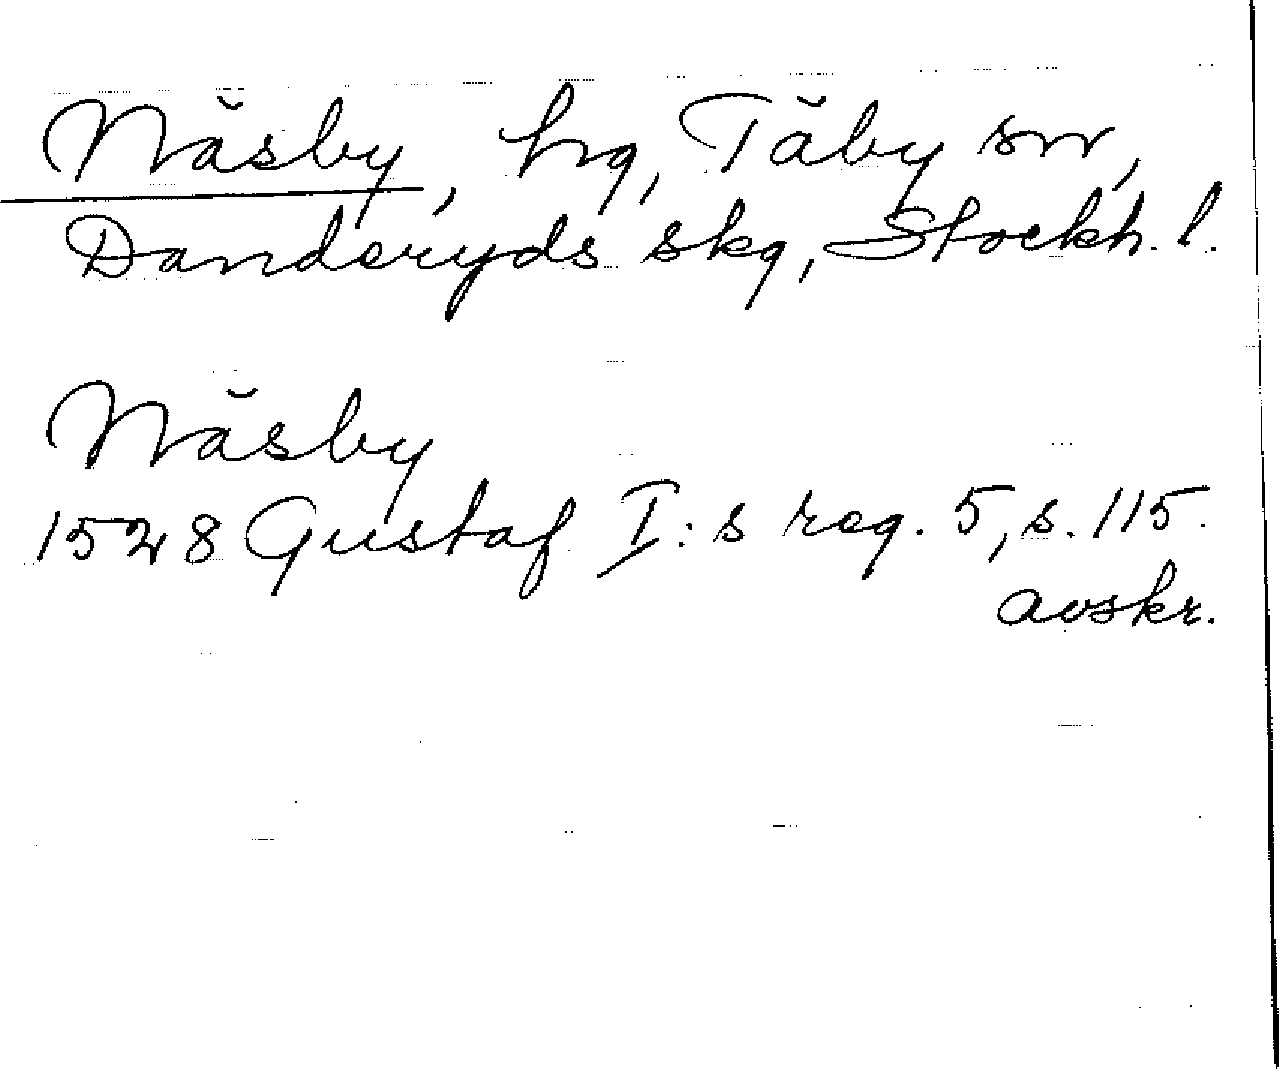 Näsby, hg, Täby sn,
Danderyds skg, Stockh. l.
Näsby
1528 Gustaf I:s reg. 5, s. 115.
avskr.